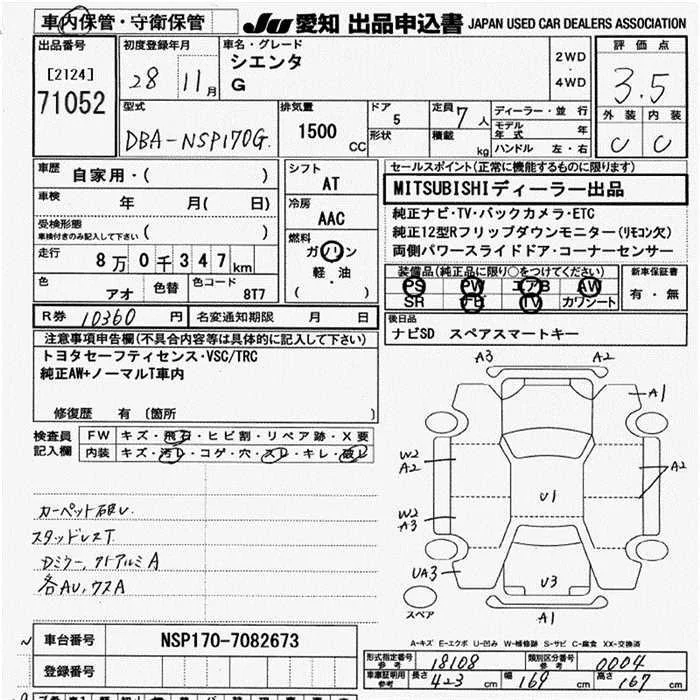 車内保管・守衛保管
JU 愛知 出品申込書 JAPAN USED CAR DEALERS ASSOCIATION
出品番号
[2124]
71052
初度登録年月
28 11月
車名・グレード
シエンタ
G
2WD
・
4WD
評価点
3.5
外装 内装
C C
型式
DBA-NSP170G
排気量
1500 CC
ドア
5
形状
定員 7 人
積載 kg
ディーラー・並行
モデル年式 年
ハンドル 左・右
車歴 自家用・( )
車検 年 月( 日)
受検形態
車検付きのみ記入して下さい ( )
走行 8万0千347km
色 アオ
色替
色コード 8T7
シフト
AT
冷房
AAC
燃料
ガソリン
軽・油
( )
セールスポイント(正常に機能するものに限ります)
MITSUBISHIディーラー出品
純正ナビ・TV・バックカメラ・ETC
純正12型Rフリップダウンモニター(リモコン欠)
両側パワースライドドア・コーナーセンサー
装備品(純正品に限り○をつけてください)
PS PW エアB AW
SR ナビ TV カワシート
新車保証書
有・無
R券 10360 円 名変通知期限 月 日
後日品
ナビSD スペアスマートキー
注意事項申告欄(不具合内容等は具体的に記入して下さい)
トヨタセーフティセンス・VSC/TRC
純正AW+ノーマルT車内
修復歴 有 〔箇所 〕
検査員記入欄
FW キズ・飛石・ヒビ割・リペア跡・X要
内装 キズ・汚レ・コゲ・穴・スレ・キレ・破レ
カーペット破レ
スタッドレスT
Dミラー、クトアルミA
各AU,ワスA
A3 A2
A1
W2
A2
A2
U1
W2
A3
UA3
U3
A1
スペア
A-キズ E-エクボ U-凹み W-補修跡 S-サビ C-腐食 XX-交換済
車台番号 NSP170-7082673
登録番号
形式指定番号 参考 18108
類別区分番号 参考 0004
車庫証明用 参考 長さ 423 cm 幅 169 cm 高さ 167 cm